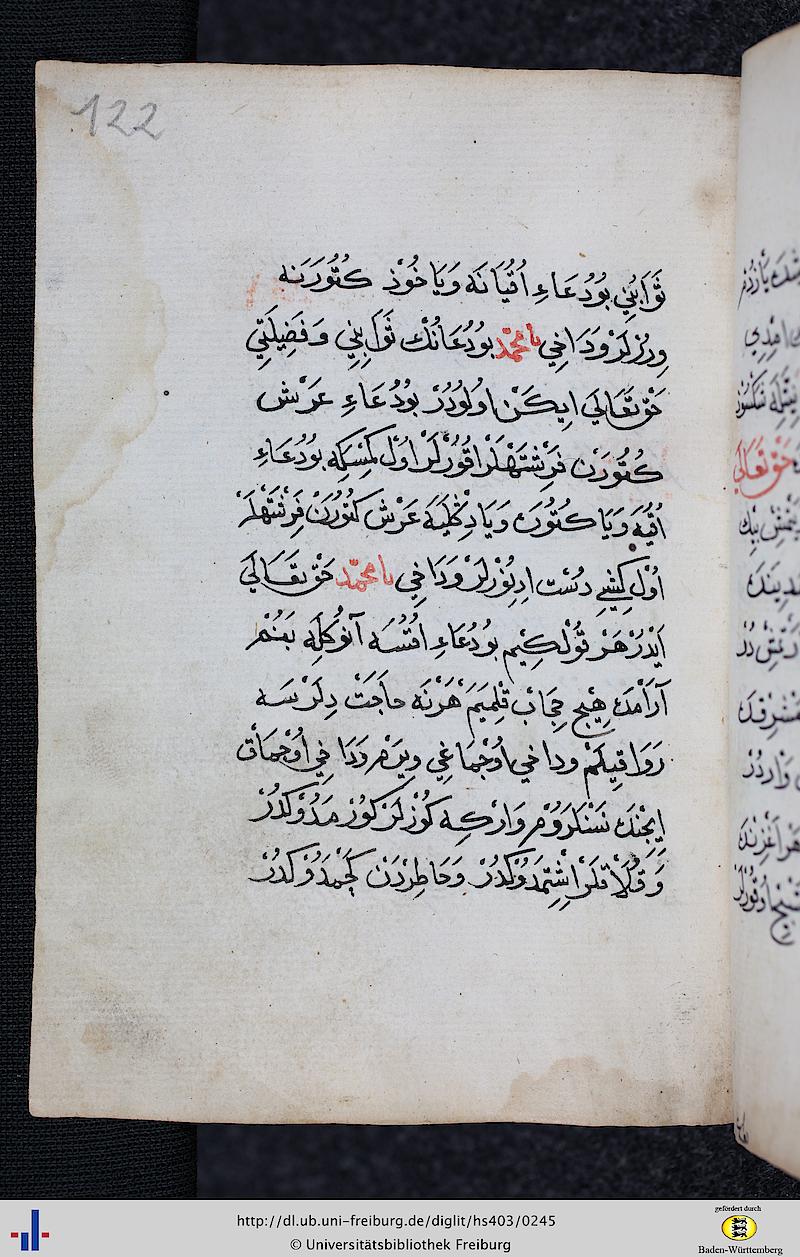 122
ثَوَابِنِي بُودُعَاءِ اُقُيَانَه وَيَا خُوذْ كُتُورَنَه
وِرُرْلَرْ وَدَاخِي يَا مُحَمَّدْ بُودُعَانُكْ ثَوَابِنِي وَفَضِيلَتِي
حَقْ تَعَالَي اِيكَنْ اُولُودُرْ بُودُعَاءِ عَرْش
كُتُورَنْ فَرِشْتَهْلَرْ اقُورْلَرْ اُولْ كِمْسَكِه بُودُعَاءِ
اُقُيَه وَيَا كُتُورَه وَيَا دِكْلَيَه عَرْش كُتُورَنْ فَرِشْتَهْلَرْ
اُولْ كِشِيِ دُسْت اِدِنُورْلَرْ وَدَاخِي يَا مُحَمَّدْ حَقْ تَعَالَي
اَيْدُرْ هَرْ قُولْ كِيمْ بُودُعَاءِ اقُسَه آنُوكْلَه بَنُمْ
آرَامْدَه هِيچْ حِجَابْ قِلْمَيَمْ هَرْنَه حَاجَتْ دِلَرْسَه
رَوَا قِيلَمْ ودَاخي اُوچْمَاغِي وِيرَمْ وَدَاخِي اُوچْمَاقْ
اِيچِنْدَه نَسْنَلَرْ وَارْكِه كُوزْلَرْ كُورْمَدُوكْدُرْ
وَقُلَاقْلَرْ اِشِتِمَدُوكْدُرْ وَخَاطِرْدَنْ كَچْمَدُوكْدُرْ
http://dl.ub.uni-freiburg.de/diglit/hs403/0245
© Universitätsbibliothek Freiburg
gefördert durch
Baden-Württemberg